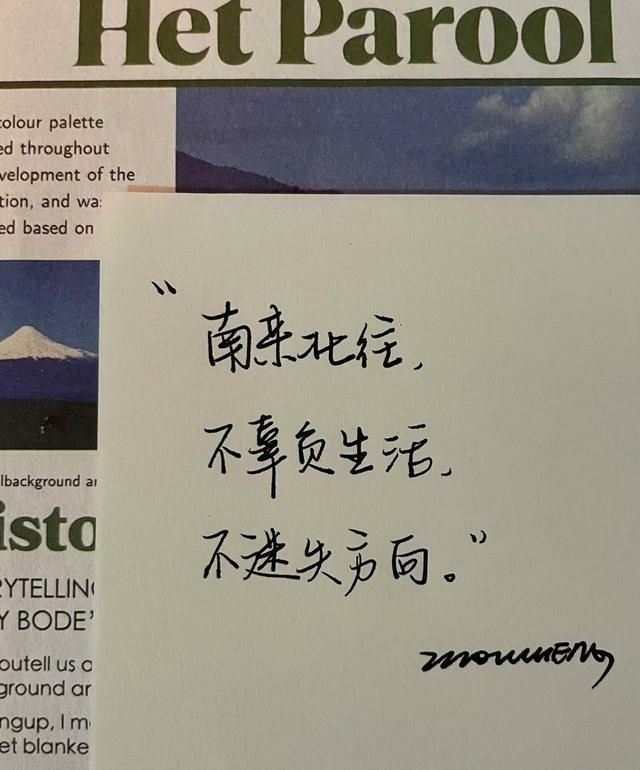 Het Parool
colour palette
ed throughout
velopment of the
tion, and was
ed based on
“南来北往，
不辜负生活，
不迷失方向。”
lbackground
isto
RYTELLING
Y BODE'
outell us
ground ar
ngup, I m
et blanke